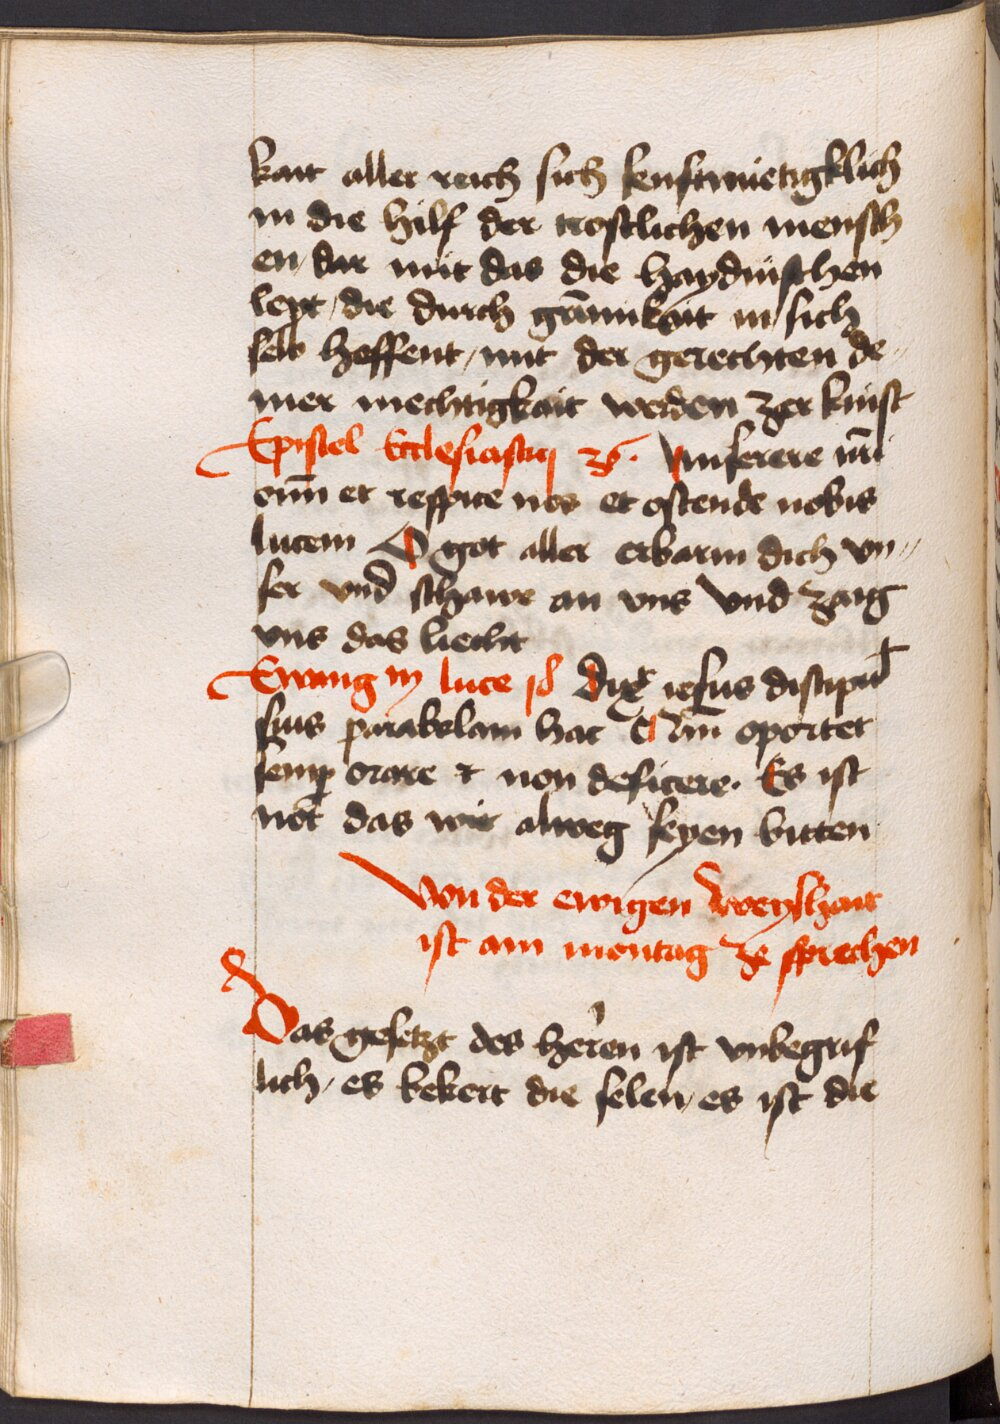 kait aller reich sich senftmietigklich
in die hilf der trostlichen mensch
en / dar mit das die haydnischen
lept / die durch grimikait in sich
selb hoffent / mit der gerechten de=
iner mechtigkait werden zerknist
Epistel Ecclesiastici Miserere nrī
oim et respice nos et ostende nobis
lucem O got aller erbarm dich vn=
ser vnd schawe an vns vnd zaig
vns das liecht
Ewang in luce Dixt iesus discipul
suis parabolam hac Qm oportet
semp orare et non deficere. Es ist
not das wir alweg seyen bitten
Von der ewigen weyshait
ist am montag ze sprechen
Das gesetzt des herren ist vnbegrif
lich / es bekert die selen / es ist die